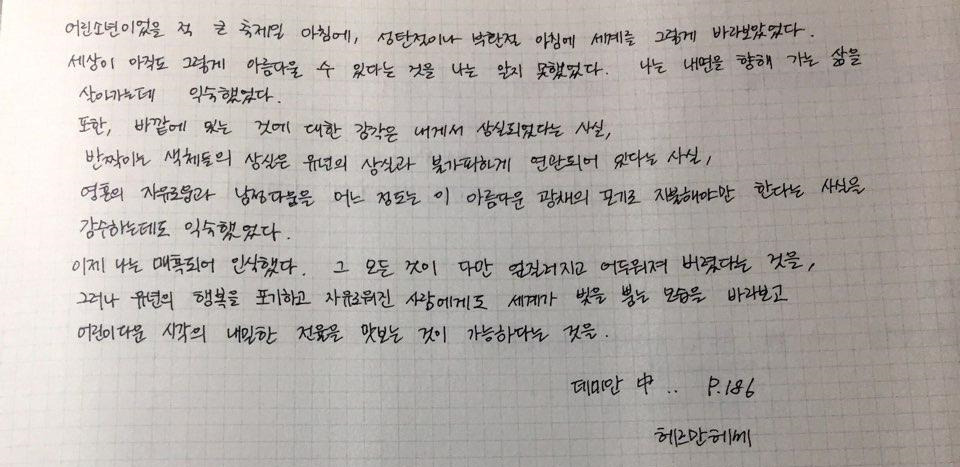 어린소년이었을 적 큰 축제일 아침에, 성탄절이나 부활절 아침에 세계를 그렇게 바라보았었다.
세상이 아직도 그렇게 아름다울 수 있다는 것을 나는 알지 못했었다. 나는 내면을 향해 가는 삶을
살아가는데 익숙했었다.
또한, 바깥에 있는 것에 대한 감각은 내게서 상실되었다는 사실,
반짝이는 색체들의 상실은 유년의 상실과 불가피하게 연관되어 있다는 사실,
영혼의 자유로움과 남성다움을 어느 정도는 이 아름다운 광채의 포기로 지불해야만 한다는 사실을
감수하는데도 익숙했었다.
이제 나는 매혹되어 인식했다. 그 모든 것이 다만 엎질러지고 어두워져 버렸다는 것을,
그러나 유년의 행복을 포기하고 자유로워진 사람에게도 세계가 빛을 뿜는 모습을 바라보고
어린이다운 시각의 내밀한 전율을 맛보는 것이 가능하다는 것을.
데미안 中 .. P.186
헤르만헤쎄